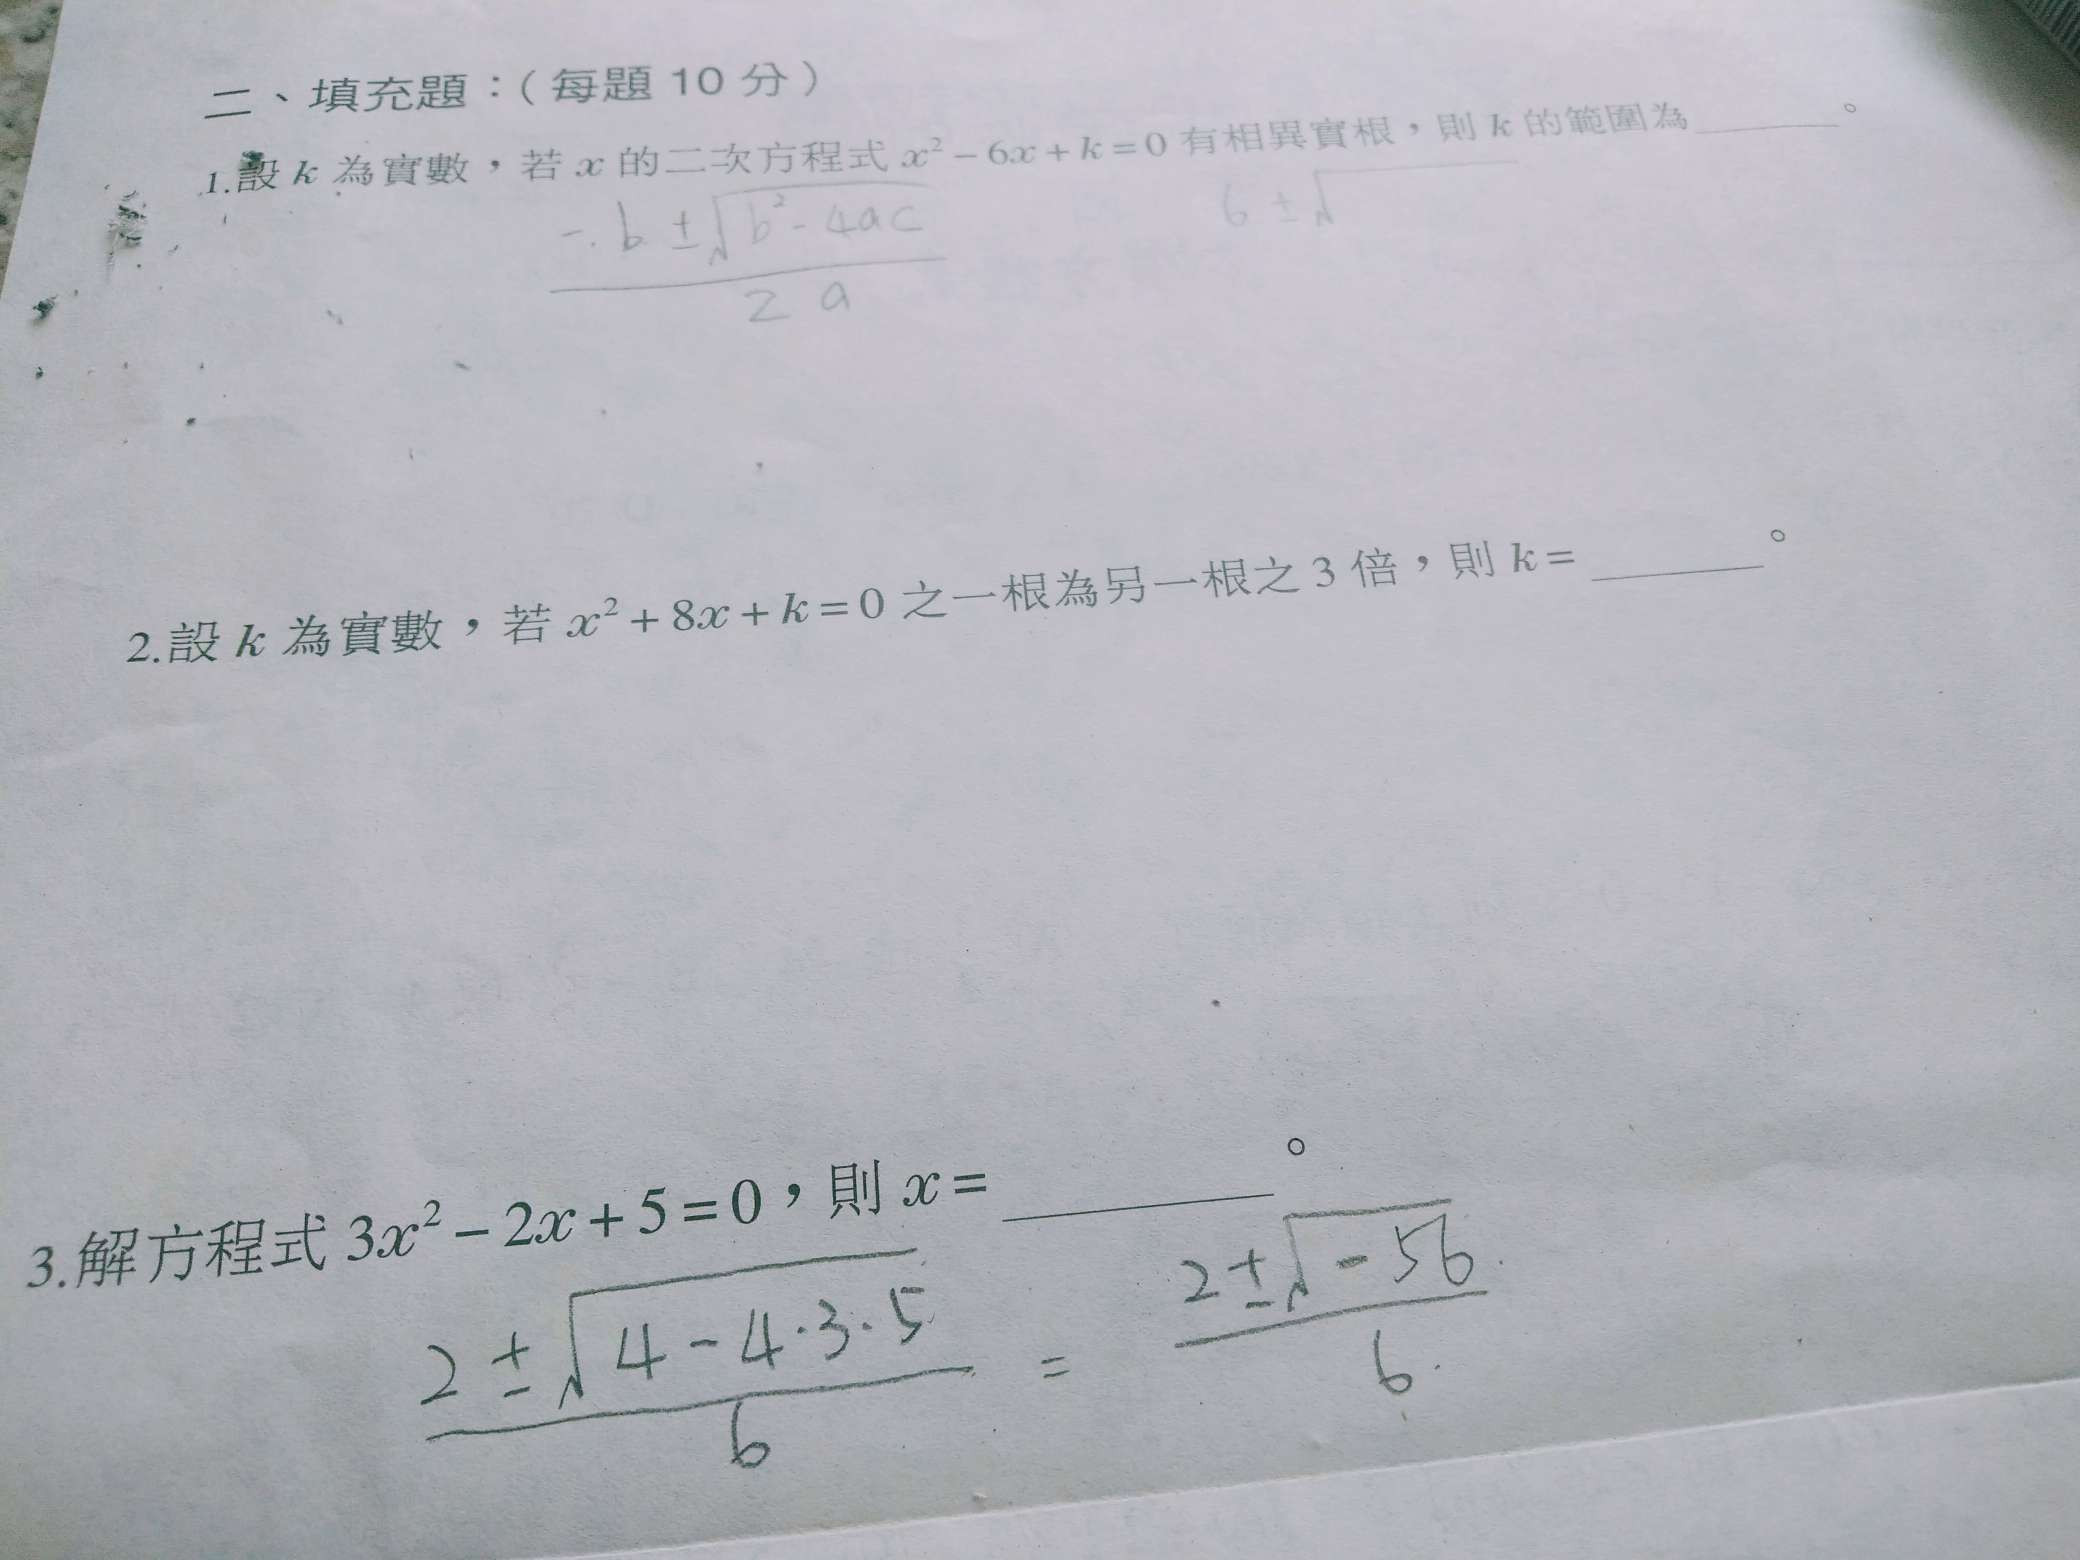 二、填充題：（每題 10 分）
1.設 k 為實數，若 x 的二次方程式 x² − 6x + k = 0 有相異實根，則 k 的範圍為______。
-b ± √(b² - 4ac) / 2a
6 ± √
2.設 k 為實數，若 x² + 8x + k = 0 之一根為另一根之 3 倍，則 k = ______。
3.解方程式 3x² − 2x + 5 = 0，則 x = ______。
2 ± √(4 - 4·3·5) / 6 = 2 ± √(-56) / 6